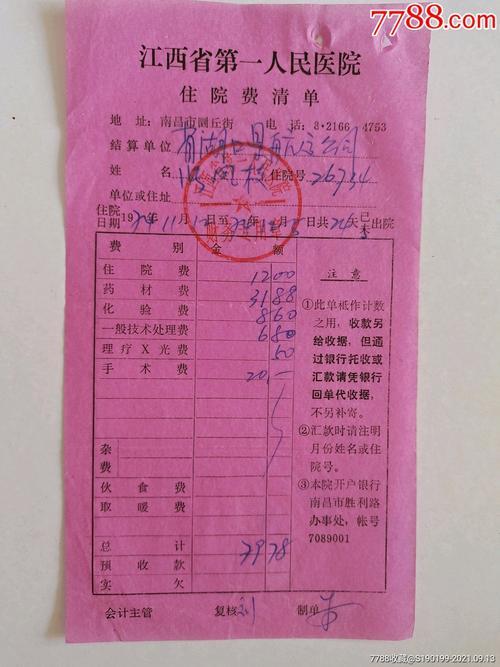 7788.com
江西省第一人民医院
住院费清单
地 址:南昌市圆丘街 电 话:8·2166 4753
结算单位
姓 名 住院号 26734
单位或住址
住院日期 19 年 11 月 日至 年 月 日共 天 已未 出院
费 别 金 额
住院费 1200
药材费 3188
化验费 860
一般技术处理费 680
理疗X光费 50
手术费 20.-
杂费
伙食费
取暖费
总计 7978
预收款
实欠
注意
①此单柢作计数
之用,收款另
给收据,但通
过银行托收或
汇款请凭银行
回单代收据,
不另补寄。
②汇款时请注明
月份姓名或住
院号。
③本院开户银行
南昌市胜利路
办事处,帐号
7089001
会计主管 复核 刘 制单
7788收藏@S190199-2021.09.13